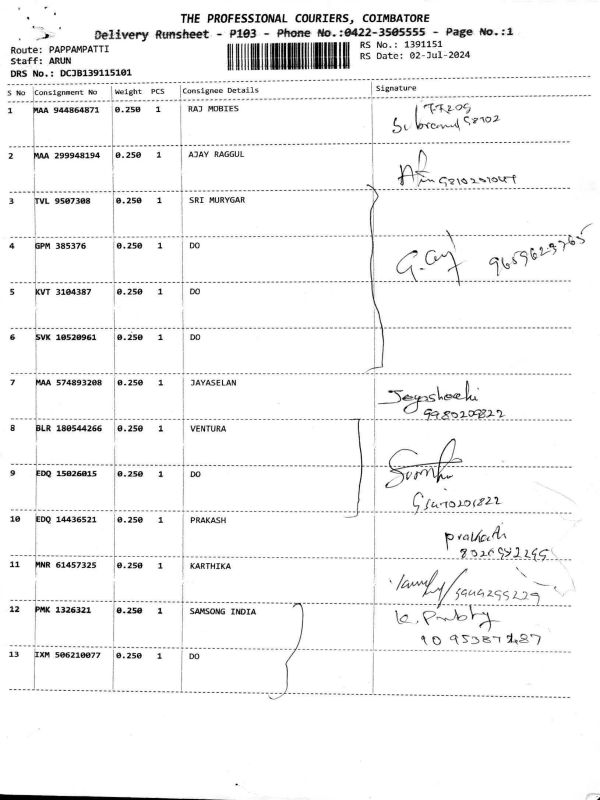 THE PROFESSIONAL COURIERS, COIMBATORE
Delivery Runsheet - P103 - Phone No.:0422-3505555 - Page No.:1
Route: PAPPAMPATTI
RS No.: 1391151
Staff: ARUN
RS Date: 02-Jul-2024
DRS No.: DCJB139115101
S No Consignment No Weight PCS Consignee Details Signature
1 MAA 944864871 0.250 1 RAJ MOBIES
2 MAA 299948194 0.250 1 AJAY RAGGUL
3 TVL 9507308 0.250 1 SRI MURYGAR
4 GPM 385376 0.250 1 DO
9659629765
5 KVT 3104387 0.250 1 DO
6 SVK 10520961 0.250 1 DO
7 MAA 574893208 0.250 1 JAYASELAN
9980209822
8 BLR 180544266 0.250 1 VENTURA
9 EDQ 15026015 0.250 1 DO
10 EDQ 14436521 0.250 1 PRAKASH
prakash
11 MNR 61457325 0.250 1 KARTHIKA
12 PMK 1326321 0.250 1 SAMSONG INDIA
K. Prabhy
13 IXM 506210077 0.250 1 DO